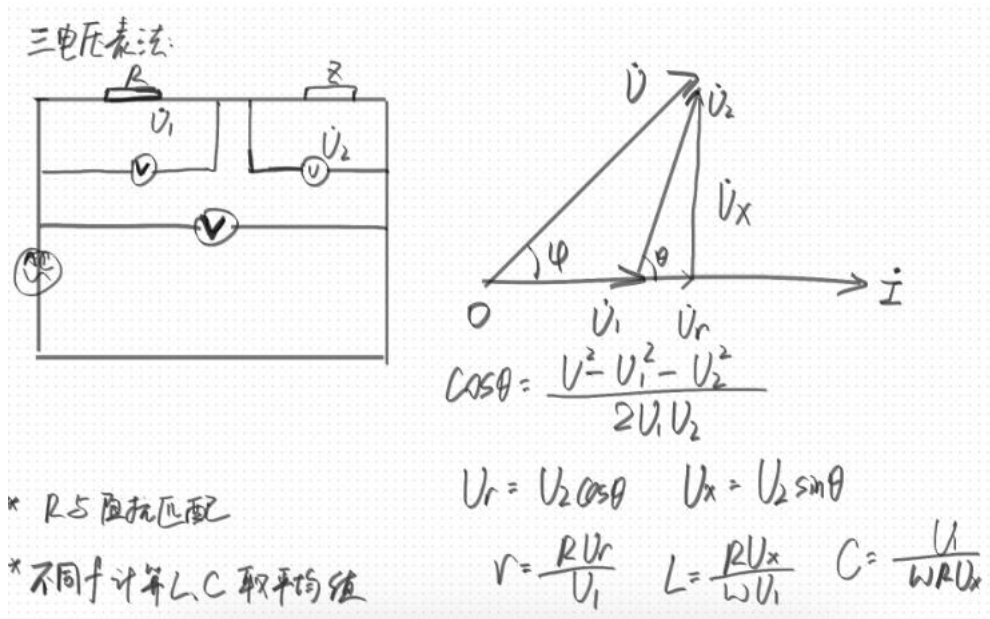 三电压表法:
R Z
U̇₁ U̇₂
V V
V
U̇ U̇₂
U̇x
φ θ
O U̇₁ U̇r İ
cosθ = (U² - U₁² - U₂²) / (2U₁U₂)
Ur = U₂cosθ Ux = U₂sinθ
* R与阻抗匹配
r = RUr / U₁ L = RUx / ωU₁ C = U₁ / ωRUx
* 不同f计算L、C取平均值